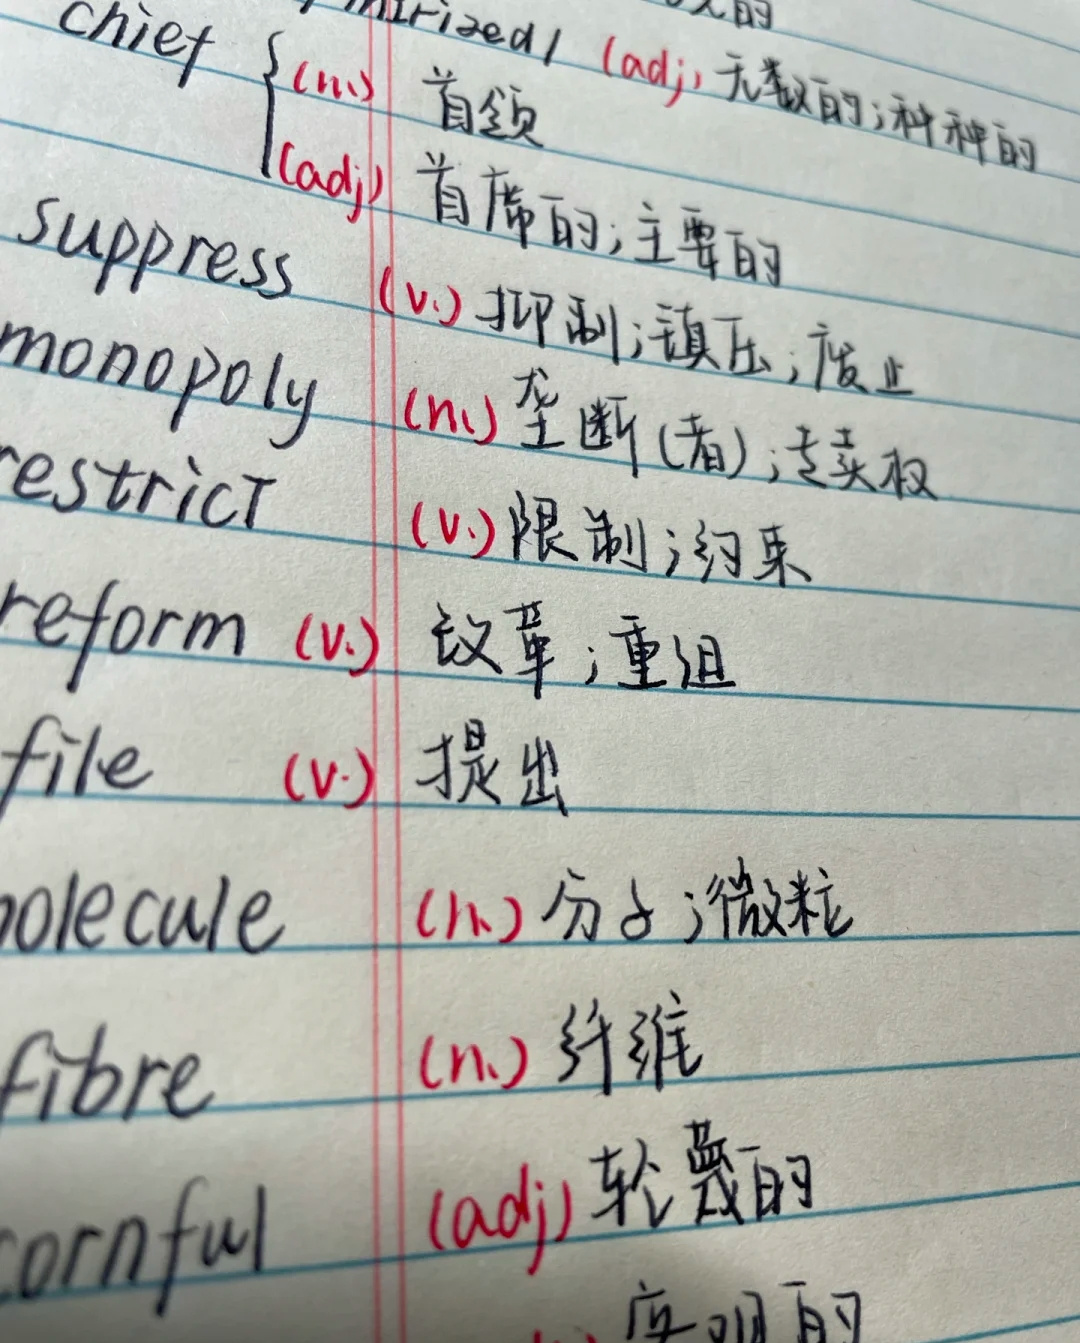 (adj) 无数的;种种的
chief (n.) 首领
(adj) 首席的;主要的
suppress (v.) 抑制;镇压;废止
monopoly (n.) 垄断(者);专卖权
restrict (v.) 限制;约束
reform (v.) 改革;重组
file (v.) 提出
olecule (n.) 分子;微粒
fibre (n.) 纤维
cornful (adj) 轮蔑的